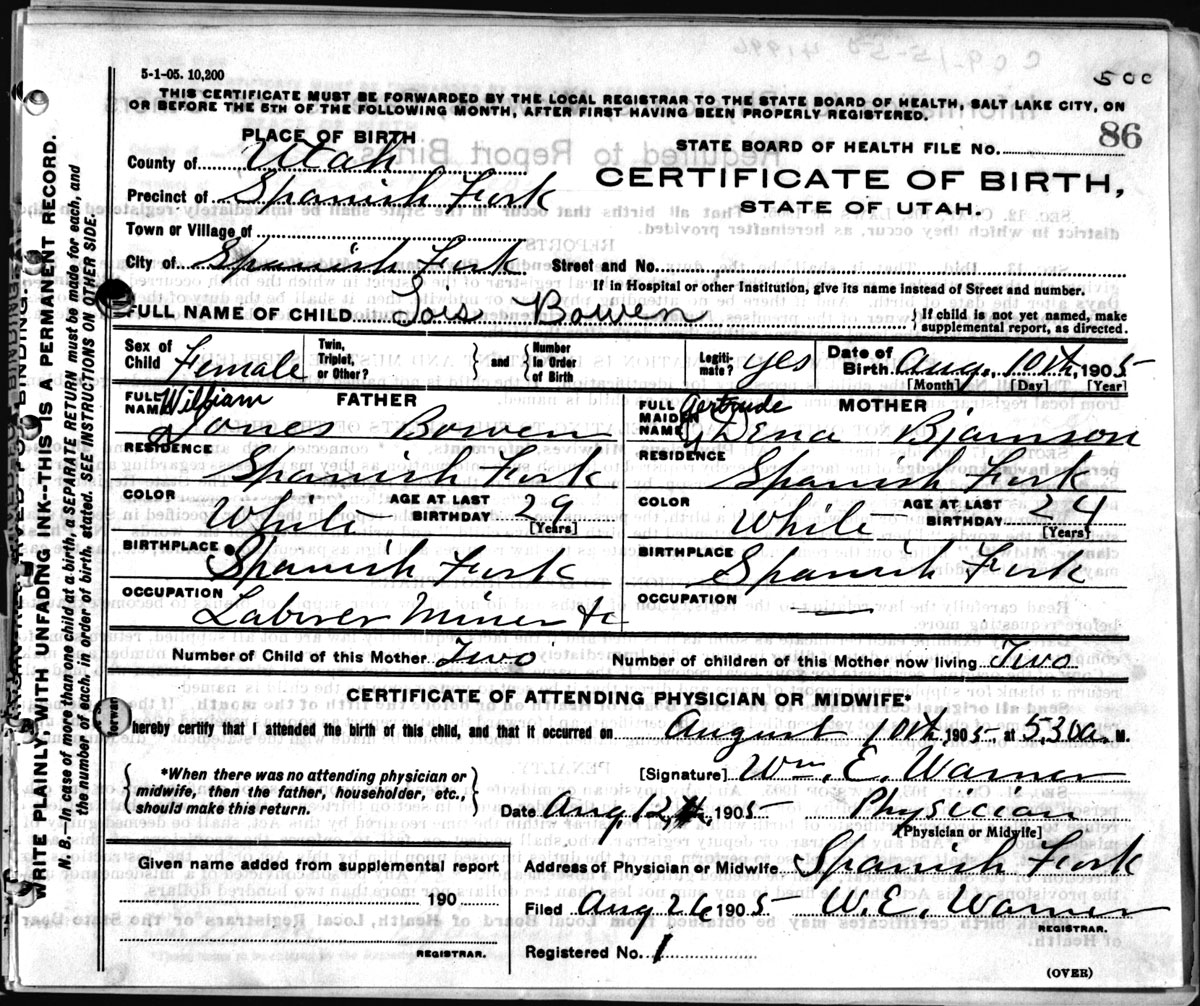 5-1-05. 10,200
5 0 0
THIS CERTIFICATE MUST BE FORWARDED BY THE LOCAL REGISTRAR TO THE STATE BOARD OF HEALTH, SALT LAKE CITY, ON
OR BEFORE THE 5TH OF THE FOLLOWING MONTH, AFTER FIRST HAVING BEEN PROPERLY REGISTERED.
PLACE OF BIRTH
STATE BOARD OF HEALTH FILE NO. 86
County of Utah
CERTIFICATE OF BIRTH,
Precinct of Spanish Fork
STATE OF UTAH.
Town or Village of
City of Spanish Fork Street and No.
If in Hospital or other Institution, give its name instead of Street and number.
FULL NAME OF CHILD Lois Bowen
If child is not yet named, make
supplemental report, as directed.
Sex of Child Female
Twin, Triplet, or Other?
and
Number In Order of Birth
Legitimate? yes
Date of Birth Aug. 10th, 1905
[Month] [Day] [Year]
FULL NAME FATHER
William
Jones Bowen
FULL MAIDEN NAME MOTHER
Gertrude
Dena Bjarnson
RESIDENCE Spanish Fork
RESIDENCE Spanish Fork
COLOR White AGE AT LAST BIRTHDAY 29 [Years]
COLOR White AGE AT LAST BIRTHDAY 24 [Years]
BIRTHPLACE Spanish Fork
BIRTHPLACE Spanish Fork
OCCUPATION Laborer Miner
OCCUPATION —
Number of Child of this Mother Two Number of children of this Mother now living Two
CERTIFICATE OF ATTENDING PHYSICIAN OR MIDWIFE*
hereby certify that I attended the birth of this child, and that it occurred on August 10th, 1905 at 5.30 a. M.
*When there was no attending physician or
midwife, then the father, householder, etc.,
should make this return.
[Signature] Wm. E. Warner
Date Aug. 12th, 1905 Physician
[Physician or Midwife]
Given name added from a supplemental report
190
REGISTRAR.
Address of Physician or Midwife Spanish Fork
Filed Aug 26 1905 W. E. Warner
REGISTRAR.
Registered No. 1
(OVER)
WRITE PLAINLY, WITH UNFADING INK--THIS IS A PERMANENT RECORD.
N. B.—In case of more than one child at a birth, a SEPARATE RETURN must be made for each, and
the number of each, in order of birth, stated. SEE INSTRUCTIONS ON OTHER SIDE.